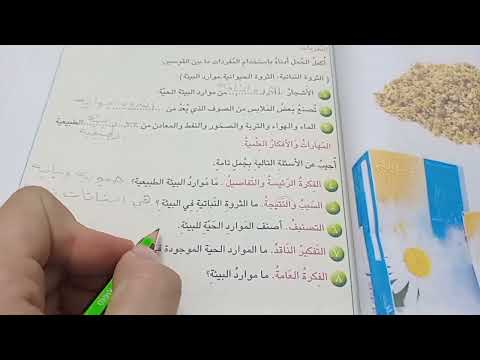 المفردات
أُكملُ الجُملَ أدناهُ باستخدامِ المُفرداتِ ما بينَ القوسينِ
( الثروة النباتية، الثروة الحيوانية، موارد البيئة)
١ الأشجارُ من مواردِ البيئةِ الحيّةِ.
٢ تُصنعُ بعضُ الملابسِ من الصوفِ الذي يُعدُّ من
٣ الماء والهواء والتربة والصخور والنفط والمعادن من الطبيعية
المَهاراتُ والأفكارُ العلميةُ
أُجيبُ عن الأسئلةِ التاليةِ بجُملٍ تامةٍ.
٤ الفكرةُ الرئيسةُ والتفاصيلُ. ما مَواردُ البيئةِ الطبيعية؟
٥ السّببُ والنتيجةُ. ما الثروة النباتية في البيئة؟ هي النباتات
٦ التصنيفُ. أصنفُ المواردَ الحيّةَ للبيئةِ.
٧ التفكيرُ الناقدُ. ما المواردُ الحية الموجودة في
٨ الفِكرةُ العامةُ. ما مواردُ البيئةِ؟